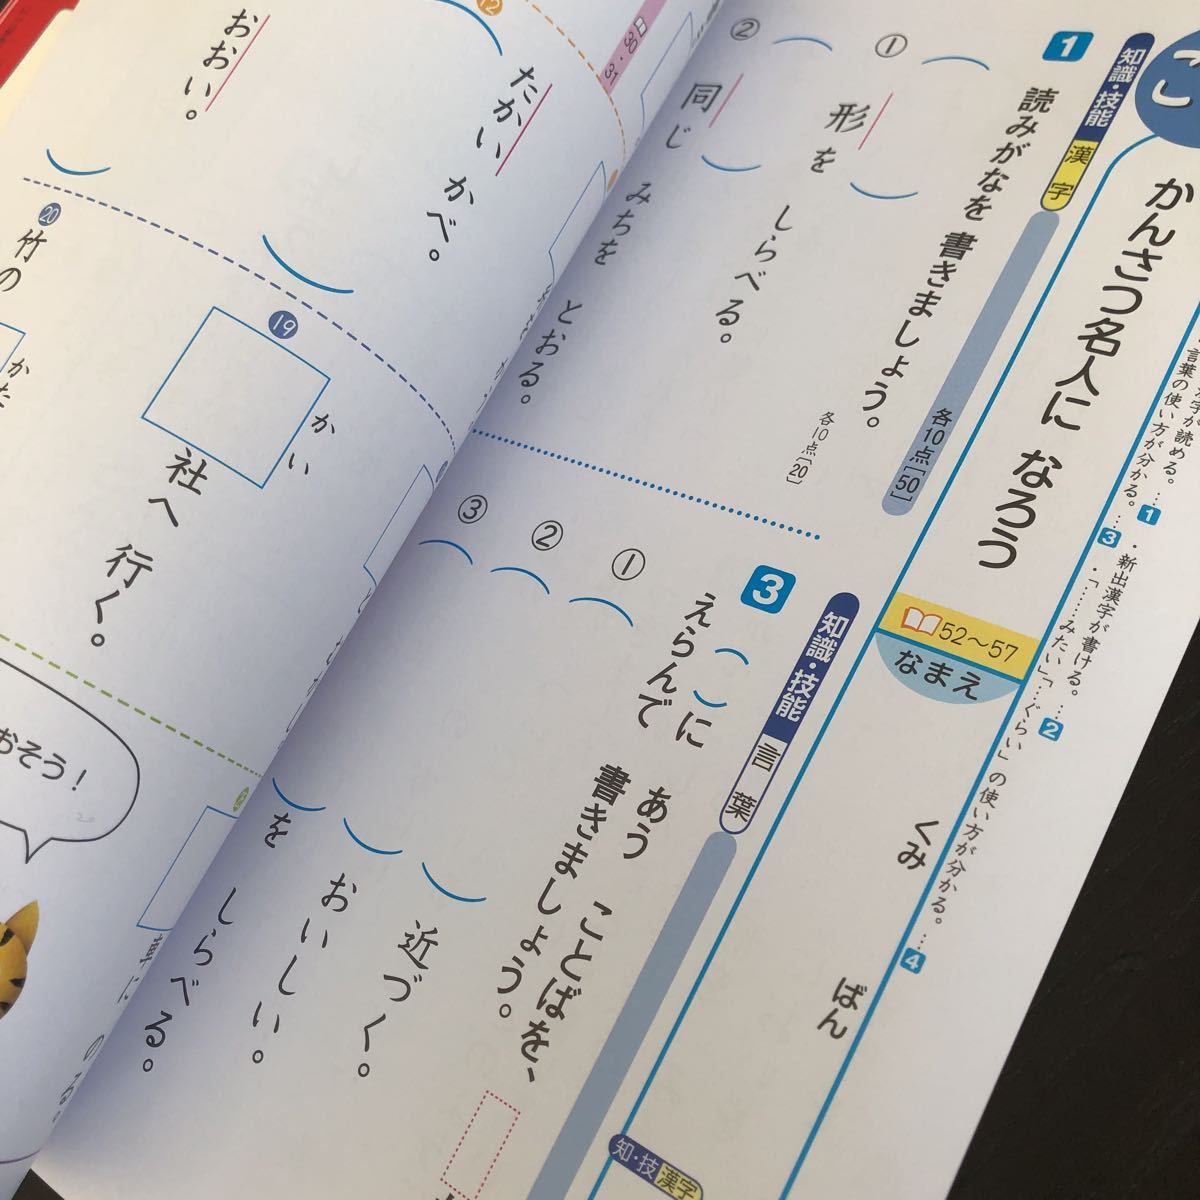 かんさつ名人に なろう
52〜57
なまえ
くみ
ばん
言葉の使い方が分かる。……3
・新出漢字が書ける。…2
・「……みたい」「…ぐらい」の使い方が分かる。…4
1
知識・技能
漢字
読みがなを 書きましょう。
各10点[50]
① 形を しらべる。
② 同じ みちを とおる。
各10点[20]
3
知識・技能
言葉
( )に あう ことばを、
えらんで 書きましょう。
① ( )近づく。
② ( )おいしい。
③ ( )を しらべる。
知・技
漢字
30・31
12
たかい かべ。
おおい。
19
かい
社へ 行く。
20
竹の
おそう!